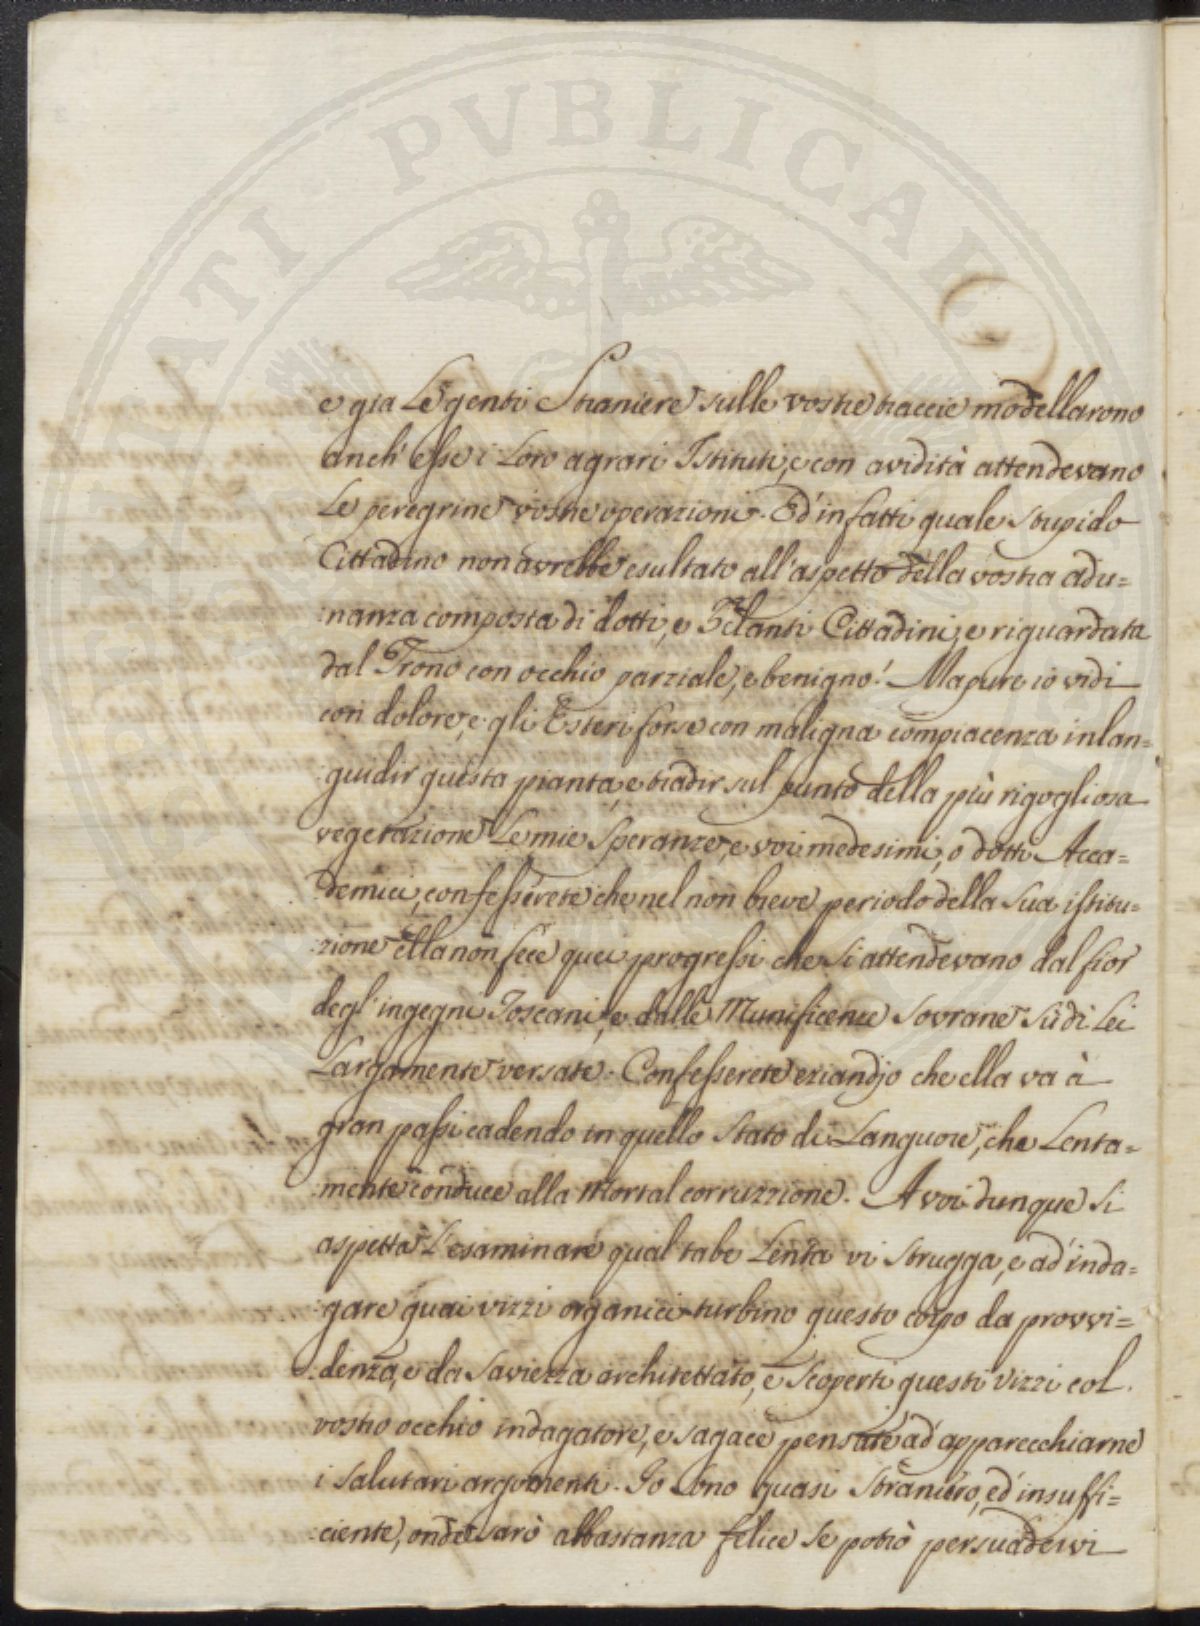 PVBLICAE
e già Le genti Straniere sulle vostre traccie modellarono
anch' esse i Loro agrari Istituti, e con avidità attendevano
Le peregrine vostre operazioni. Ed' infatti quale stupido
Cittadino non avrebbe esultato all' aspetto della vostra adu=
:nanza composta di dotti, e Zelanti Cittadini, e riguardata
dal Trono con occhio parziale, e benigno! Ma pure io vidi
con dolore, e gli Esteri forse con maligna compiacenza inlan=
:guidir questa pianta, e tradir sul punto della più rigogliosa
vegetazione Le mie Speranze, e voi medesimi, o dotti Acca=
:demici, confesserete che nel non breve periodo della Sua istitu=
:zione ella non fece quei progressi che si attendevano dal fior
degl' ingegni Toscani, e dalle Munificenze Sovrane Sù di Lei
Largamente versate. Confesserete eziandjo che ella va à
gran passi cadendo in quello Stato di Languore, che Lenta=
:mente conduce alla mortal corruzzione. A voi dunque Si
aspetta L'esaminare qual tabe Lenta vi Strugga, e ad' inda=
:gare quai vizzi organici turbino questo corpo da provvi=
:denza, e da Saviezza architettato, e Scoperti questi vizzi col
vostro occhio indagatore, e sagace pensate ad' apparecchiarne
i Salutari argomenti. Io Sono quasi Straniero, ed' insuffi=
:ciente, onde sarò abbastanza felice Se potrò persuadervi